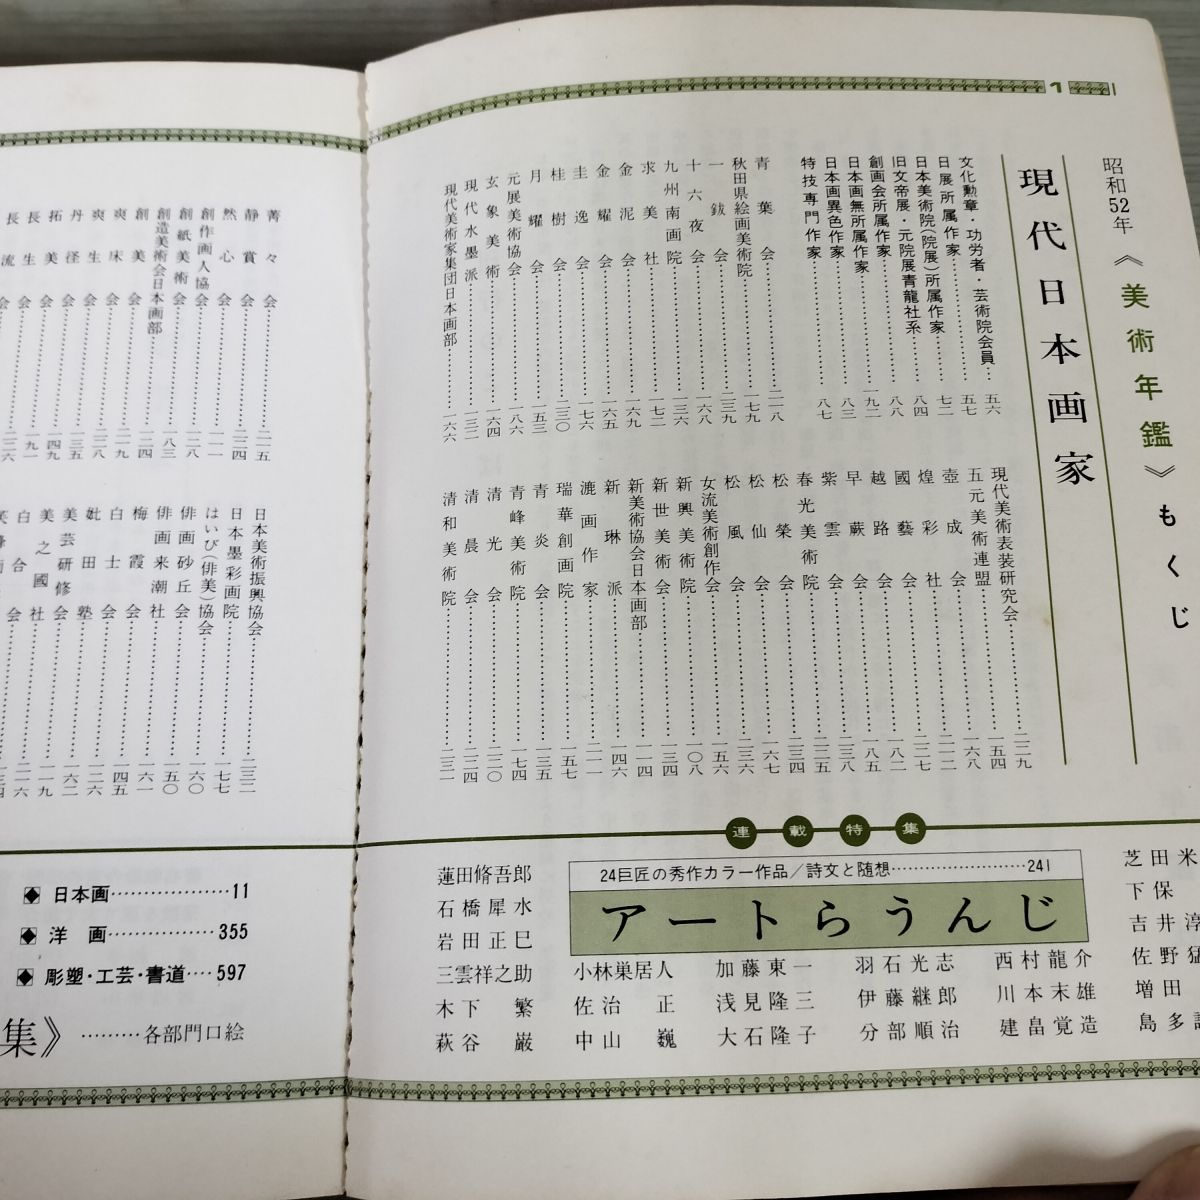 1
昭和52年《美術年鑑》もくじ
現代日本画家
文化勲章・功労者・芸術院会員…五六
日展所属作家……五七
日本美術院(院展)所属作家……七二
旧文帝展・元院展青龍社系……八四
創画会所属作家……八八
日本画無所属作家……一九二
日本画異色作家……八三
特技専門作家……八七
青葉会……二一八
秋田県絵画美術院……一七九
一鈸会……二三九
十六夜会……一六八
九州南画院……一三六
求美社……一七二
金泥会……一六九
金耀会……二一六
圭逸会……一七六
桂樹会……二三〇
月耀会……一五三
元展美術協会……一八六
玄象美術……一六四
現代水墨派……一三二
現代美術家集団日本画部……一六六
現代美術表装研究会……二二九
五元美術連盟……一五四
壺成会……一六八
煌彩社……二一二
國藝会……一二七
越路会……一八二
早蕨会……一八五
紫雲会……二三八
春光美術院……二二五
松榮会……二三四
松仙会……一六七
松風会……二三六
女流美術創作会……一五六
新興美術院……一〇八
新世美術会……一三四
新美術協会日本画部……一一四
新琳派……一四六
漉画作家……二一一
瑞華創画会……一五七
青炎会……二三五
青峰美術院……一七四
清光会……二二〇
清晨会……二二四
清和美術院……一三一
菁々会……二一五
静賞会……二二四
然心会……二一一
創作画人協会……一二八
創紙美術会……一八三
創造美術会日本画部
創美会……一二四
爽床会……二一九
爽生会……二二四
丹径会……二三五
拓美会……一四九
長生会……一九一
長流会……二三六
日本美術振興協会……二三二
日本墨彩画院……一七七
はいび(俳美)協会……一六〇
俳画砂丘会……一五〇
俳画来潮社……一六一
梅霞会……一四五
白士会……二二六
妣田塾……一六二
美芸研修会……二一九
美之國社……二一六
白合会
連載特集
24巨匠の秀作カラー作品/詩文と随想……241
アートらうんじ
蓮田脩吾郎
石橋犀水
岩田正巳
三雲祥之助 小林巣居人 加藤東一 羽石光志 西村龍介
木下繁 佐治正 浅見隆三 伊藤継郎 川本末雄
萩谷巌 中山巍 大石隆子 分部順治 建畠覚造
芝田米
下保
吉井淳
佐野猛
増田
島多
◆日本画……11
◆洋画……355
◆彫塑・工芸・書道……597
集》……各部門口絵